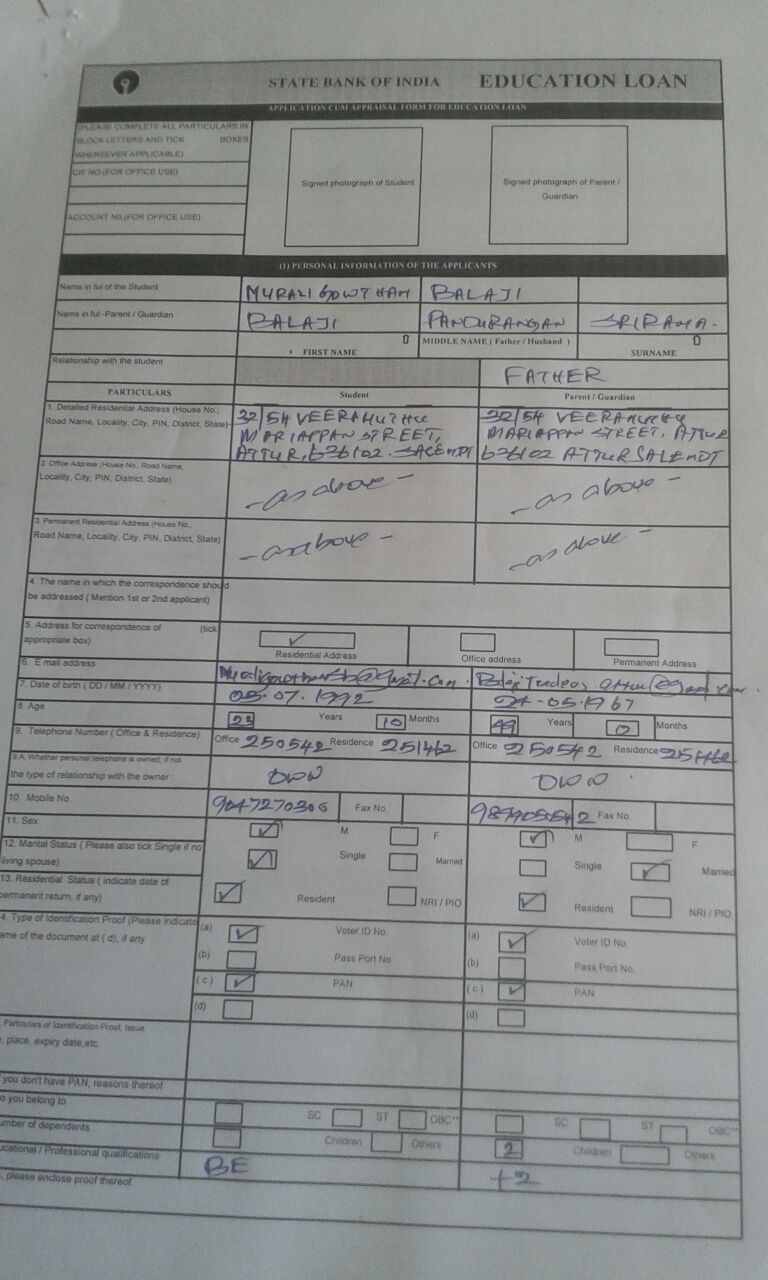 STATE BANK OF INDIA EDUCATION LOAN
APPLICATION CUM APPRAISAL FORM FOR EDUCATION LOAN
(PLEASE COMPLETE ALL PARTICULARS IN
BLOCK LETTERS AND TICK BOXES
WHEREEVER APPLICABLE)
CIF NO.(FOR OFFICE USE)
ACCOUNT NO.(FOR OFFICE USE)
Signed photograph of Student
Signed photograph of Parent /
Guardian
(1) PERSONAL INFORMATION OF THE APPLICANTS
Name in ful of the Student MURALI GOWTHAM BALAJI
Name in ful -Parent / Guardian BALAJI PANDURANGAN SRIRAMA.
FIRST NAME MIDDLE NAME ( Father / Husband ) SURNAME
Relationship with the student FATHER
PARTICULARS Student Parent / Guardian
1. Detailed Residential Address (House No.,
Road Name, Locality, City, PIN, District, State)
32/54 VEERAMUTHU
MARIAPPAN STREET,
ATTUR, 636102. SALEMDT
32/54 VEERAMUTHU
MARIAPPAN STREET, ATTUR
636102 ATTUR SALEMDT
2. Office Address (House No., Road Name,
Locality, City, PIN, District, State)
- as above - - as above -
3. Permanent Residential Address (House No.,
Road Name, Locality, City, PIN, District, State)
- as above - - as above -
4. The name in which the correspondence should
be addressed ( Mention 1st or 2nd applicant)
5. Address for correspondence of (tick
appropriate box)
Residential Address Office address Permanent Address
6. E mail address
7. Date of birth ( DD / MM / YYYY) 05.07.1992 -05.1967
8. Age 23 Years 10 Months 49 Years 0 Months
9. Telephone Number ( Office & Residence) Office 250542 Residence 251462 Office 250542 Residence
9 A. Whether personal telephone is owned, if not
the type of relationship with the owner OWN OWN
10. Mobile No. 9047270306 Fax No. Fax No.
11. Sex M F M F
12. Marital Status ( Please also tick Single if no
living spouse) Single Married Single Married
13. Residential Status ( indicate date of
permanent return, if any) Resident NRI / PIO Resident NRI / PIO
4. Type of Identification Proof (Please indicate
ame of the document at ( d), if any
(a) Voter ID No. (a) Voter ID No.
(b) Pass Port No. (b) Pass Port No.
( c ) PAN ( c ) PAN
(d) (d)
Particulars of Identification Proof, Issue
, place, expiry date,etc.
you don't have PAN, reasons thereof
o you belong to SC ST OBC** SC ST OBC**
umber of dependents Children Others 2 Children Others
ucational / Professional qualifications BE +2
, please enclose proof thereof